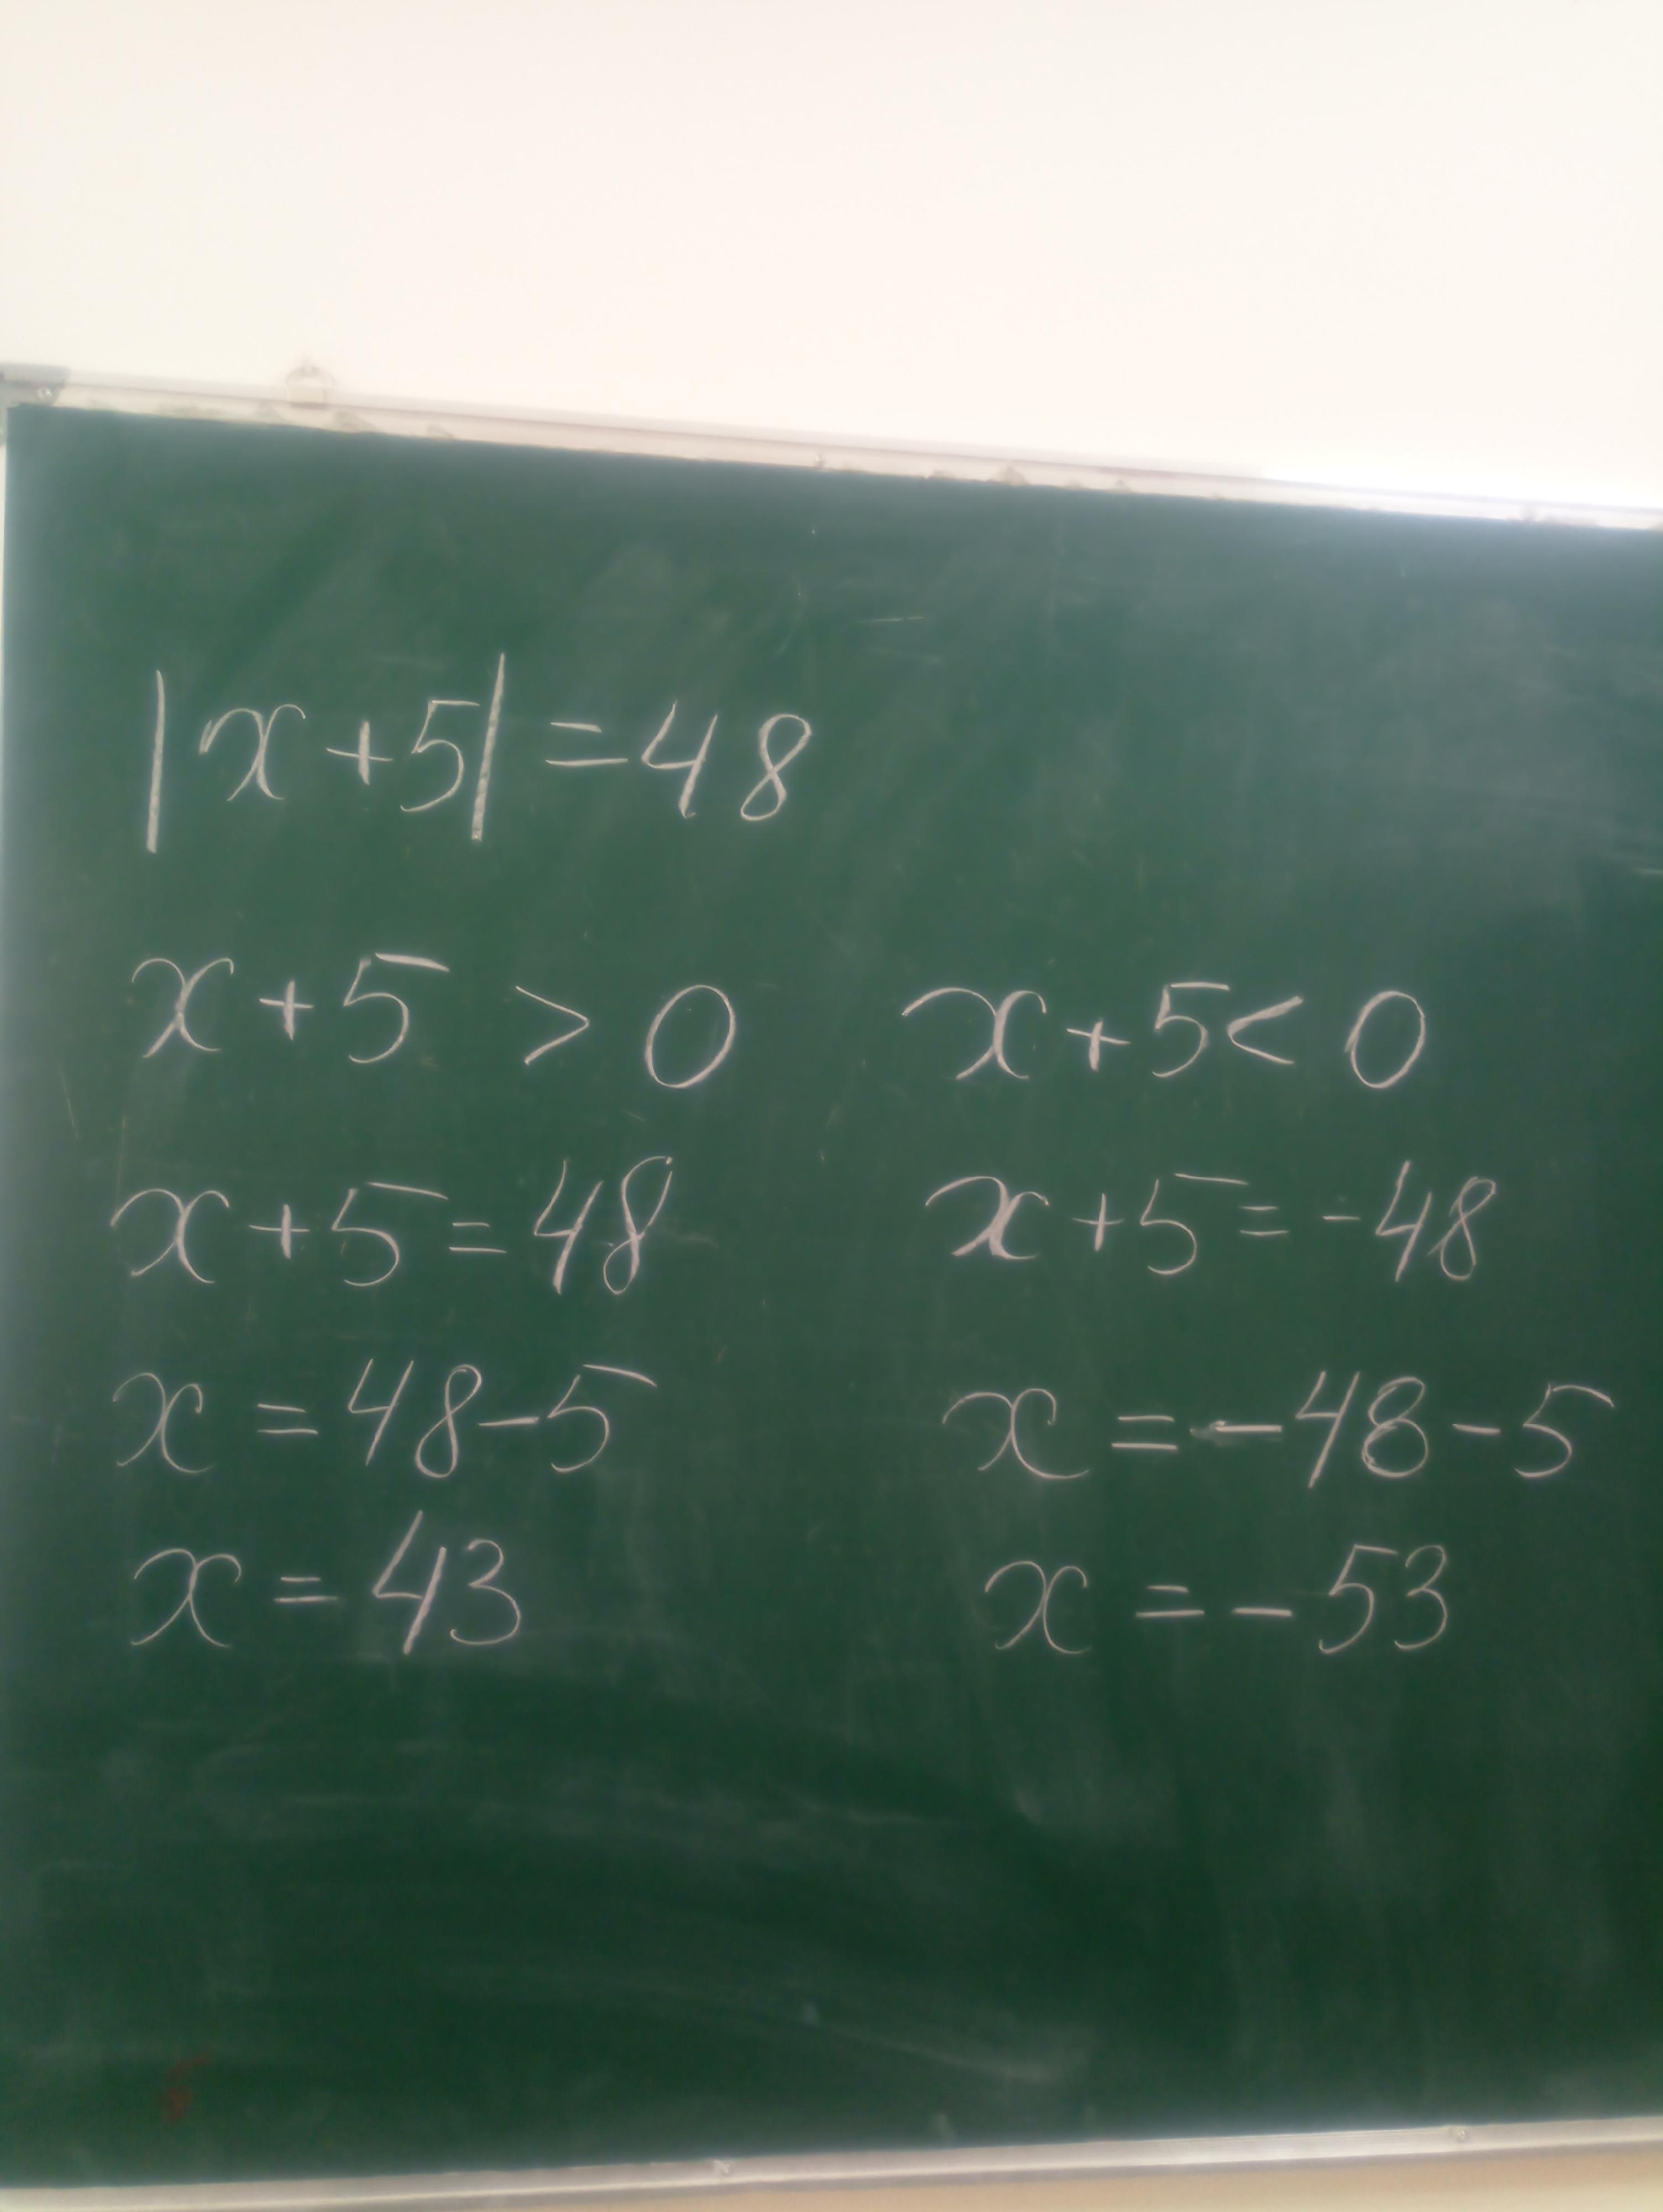 |x+5|=48
x+5 > 0 x+5< 0
x+5=48 x+5=-48
x=48-5 x=-48-5
x=43 x=-53